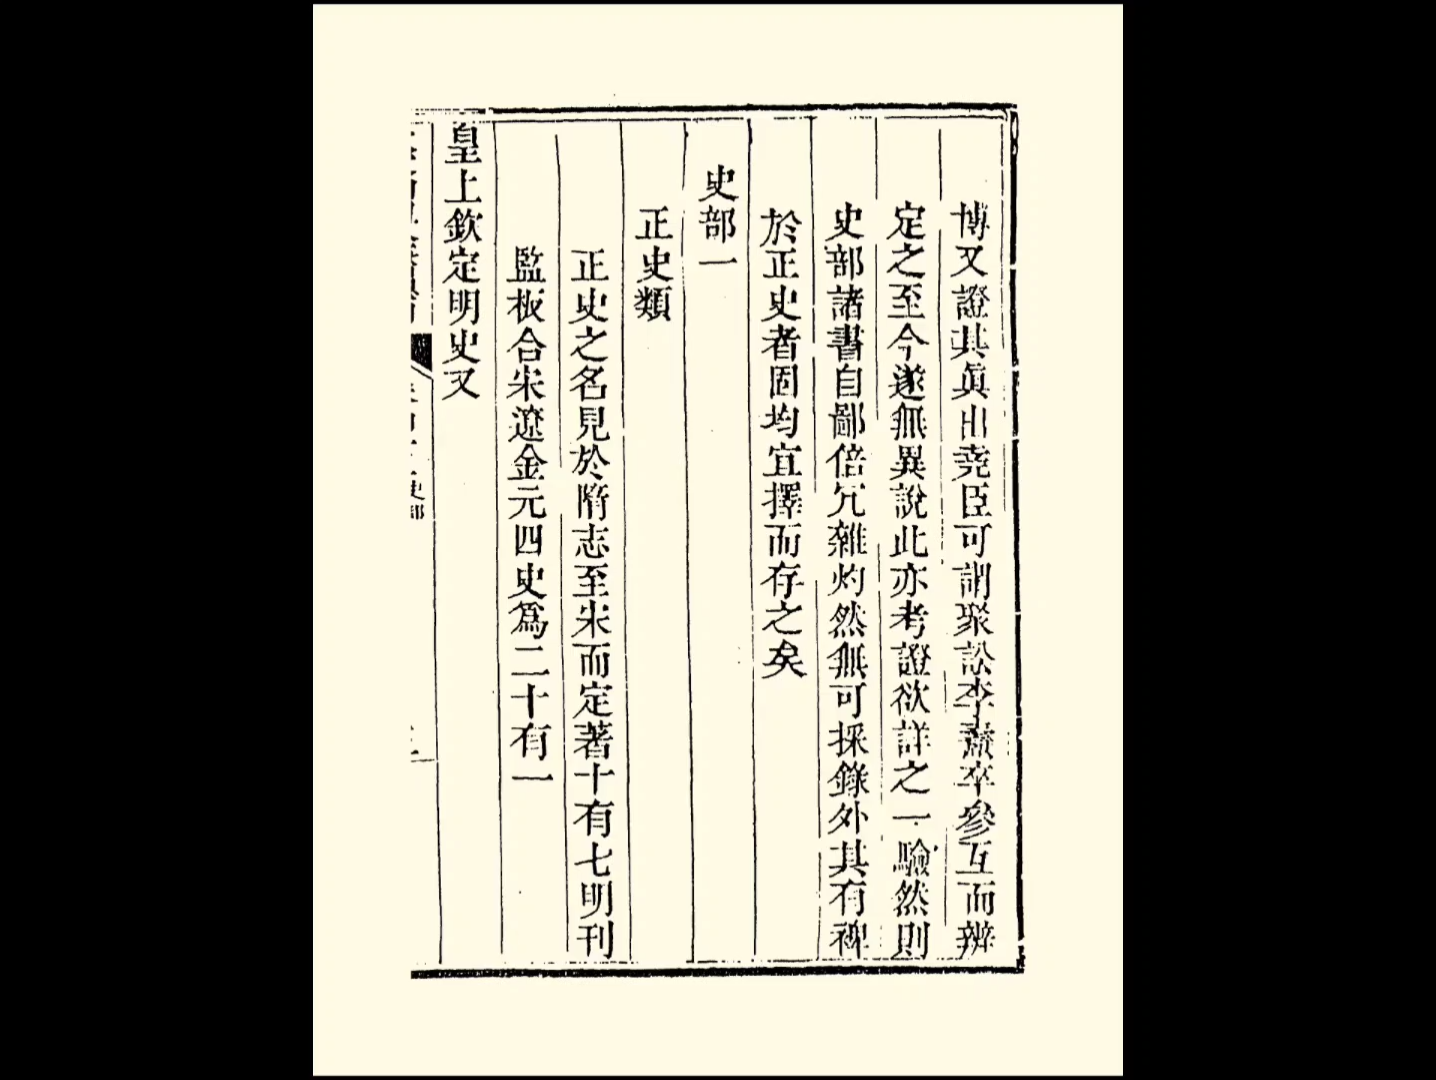 博又證其眞出堯臣可謂聚訟李燾卒參互而辨
定之至今遂無異說此亦考證欲詳之一驗然則
史部諸書自鄙倍冗雜灼然無可採錄外其有裨
於正史者固均宜擇而存之矣
史部一
正史類
正史之名見於隋志至宋而定著十有七明刊
監板合宋遼金元四史爲二十有一
皇上欽定明史又
史部